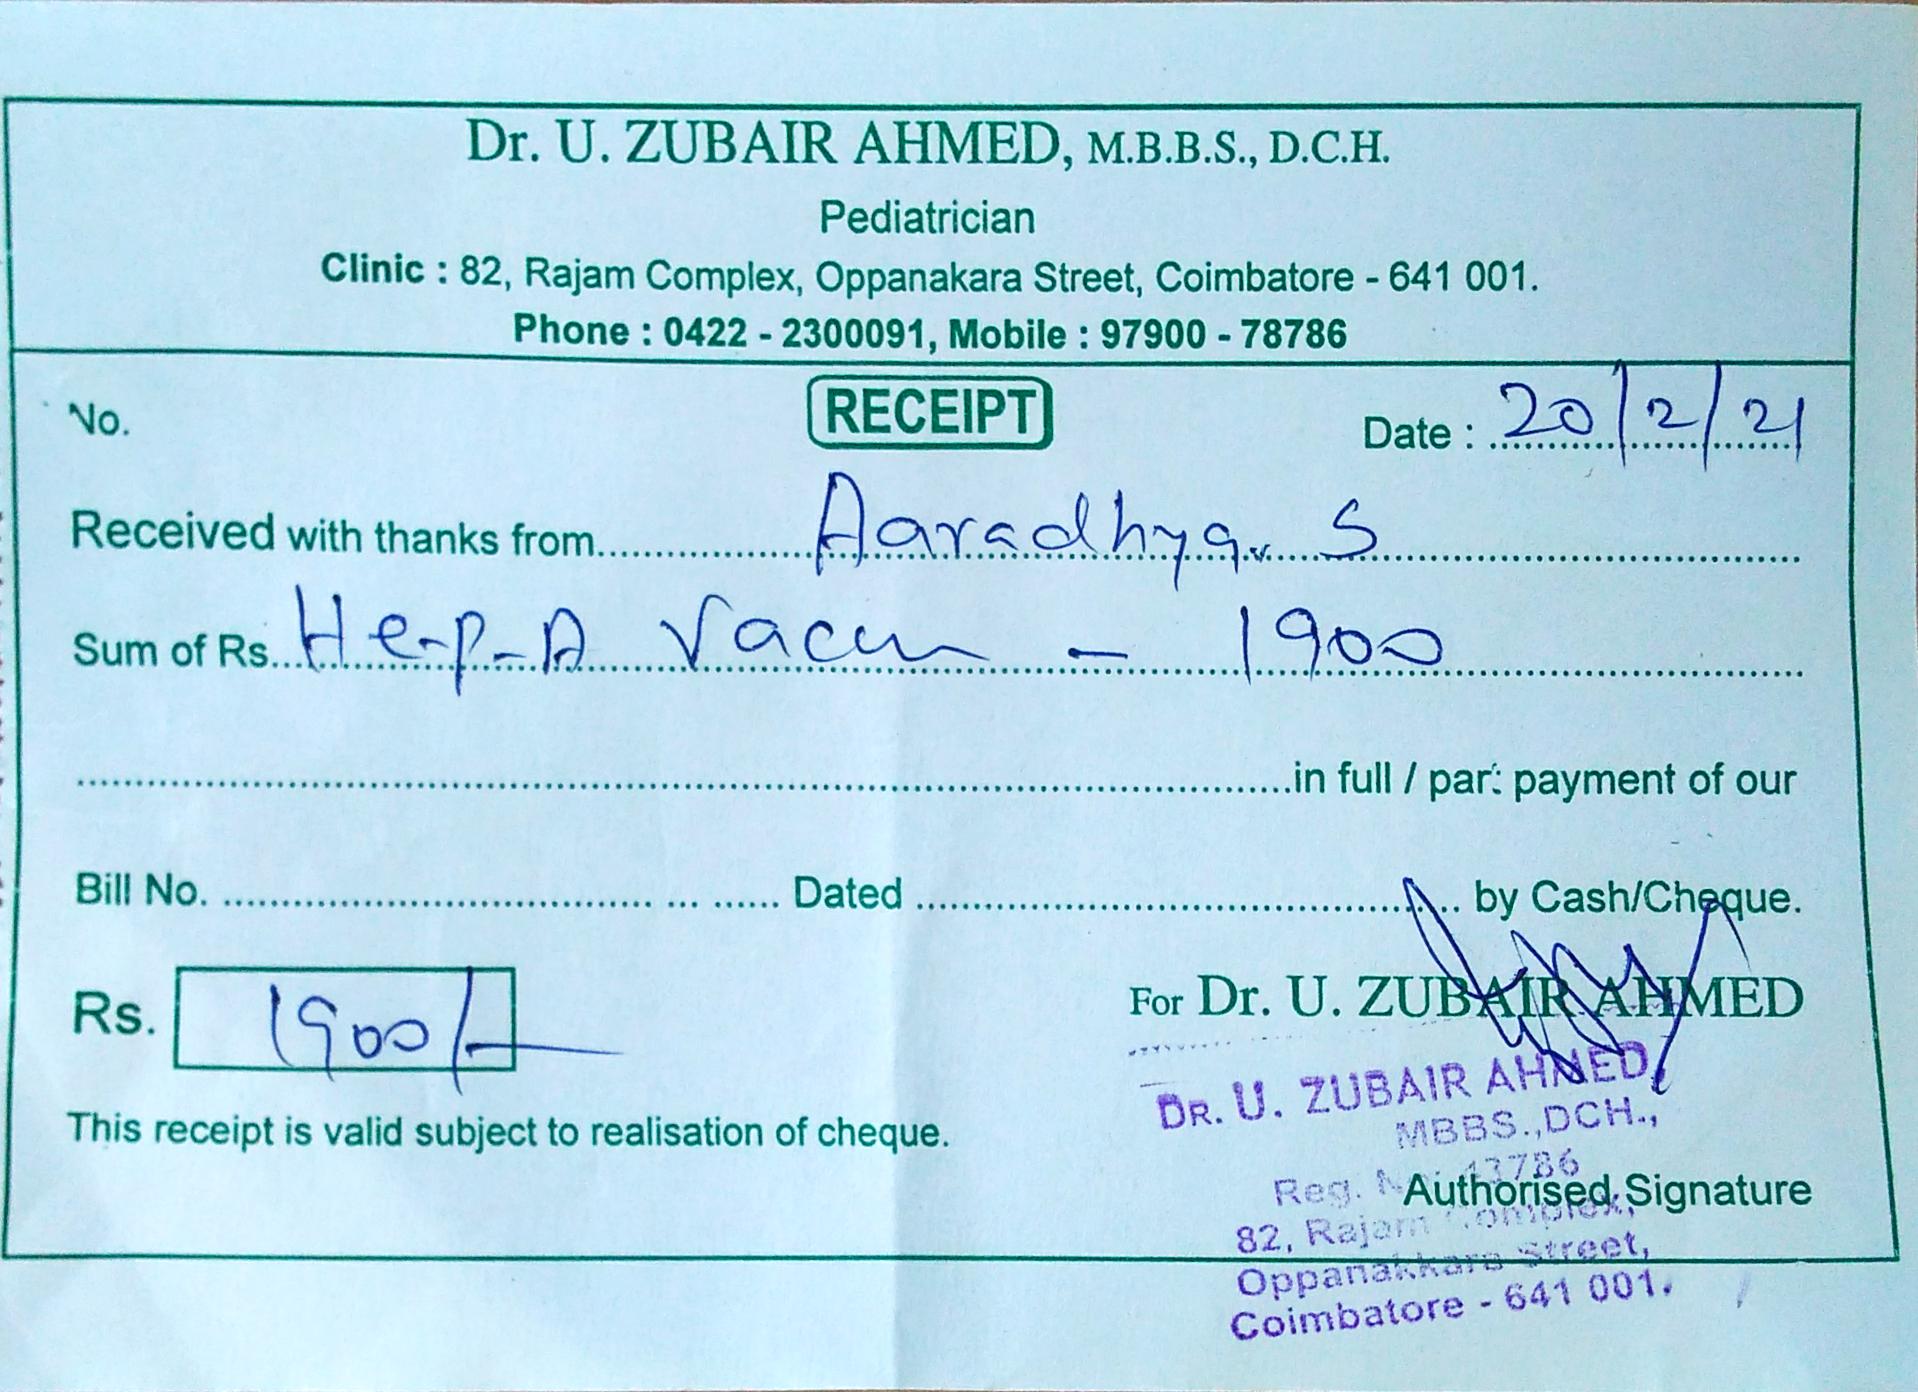 Dr. U. ZUBAIR AHMED, M.B.B.S., D.C.H.
Pediatrician
Clinic : 82, Rajam Complex, Oppanakara Street, Coimbatore - 641 001.
Phone : 0422 - 2300091, Mobile : 97900 - 78786
No. RECEIPT Date : 20/2/21
Received with thanks from Aaradhya. S
Sum of Rs. Hep-A Vaccn - 1900
in full / part payment of our
Bill No. Dated by Cash/Cheque.
Rs. 1900/-
For Dr. U. ZUBAIR AHMED
DR. U. ZUBAIR AHMED,
MBBS.,DCH.,
This receipt is valid subject to realisation of cheque.
Reg. No: 43786
Authorised Signature
82, Rajam Complex,
Oppanakkara Street,
Coimbatore - 641 001.